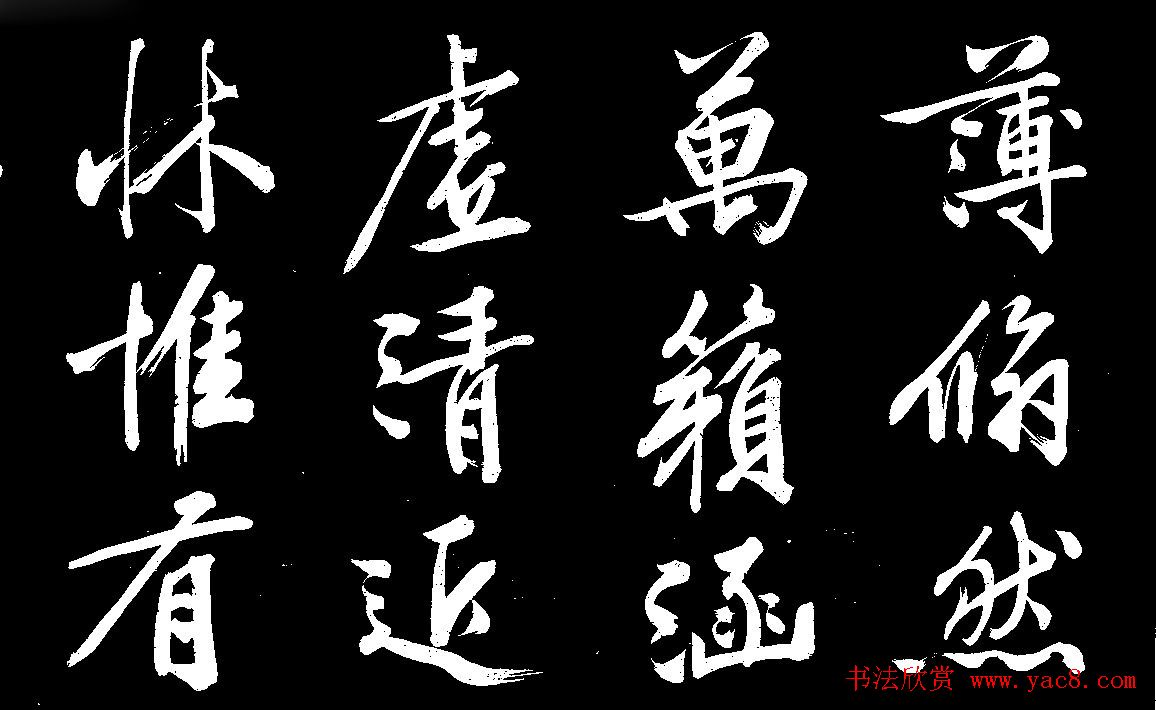 薄翛然
萬籟涵
虛清近
牀惟有
书法欣赏 www.yac8.com